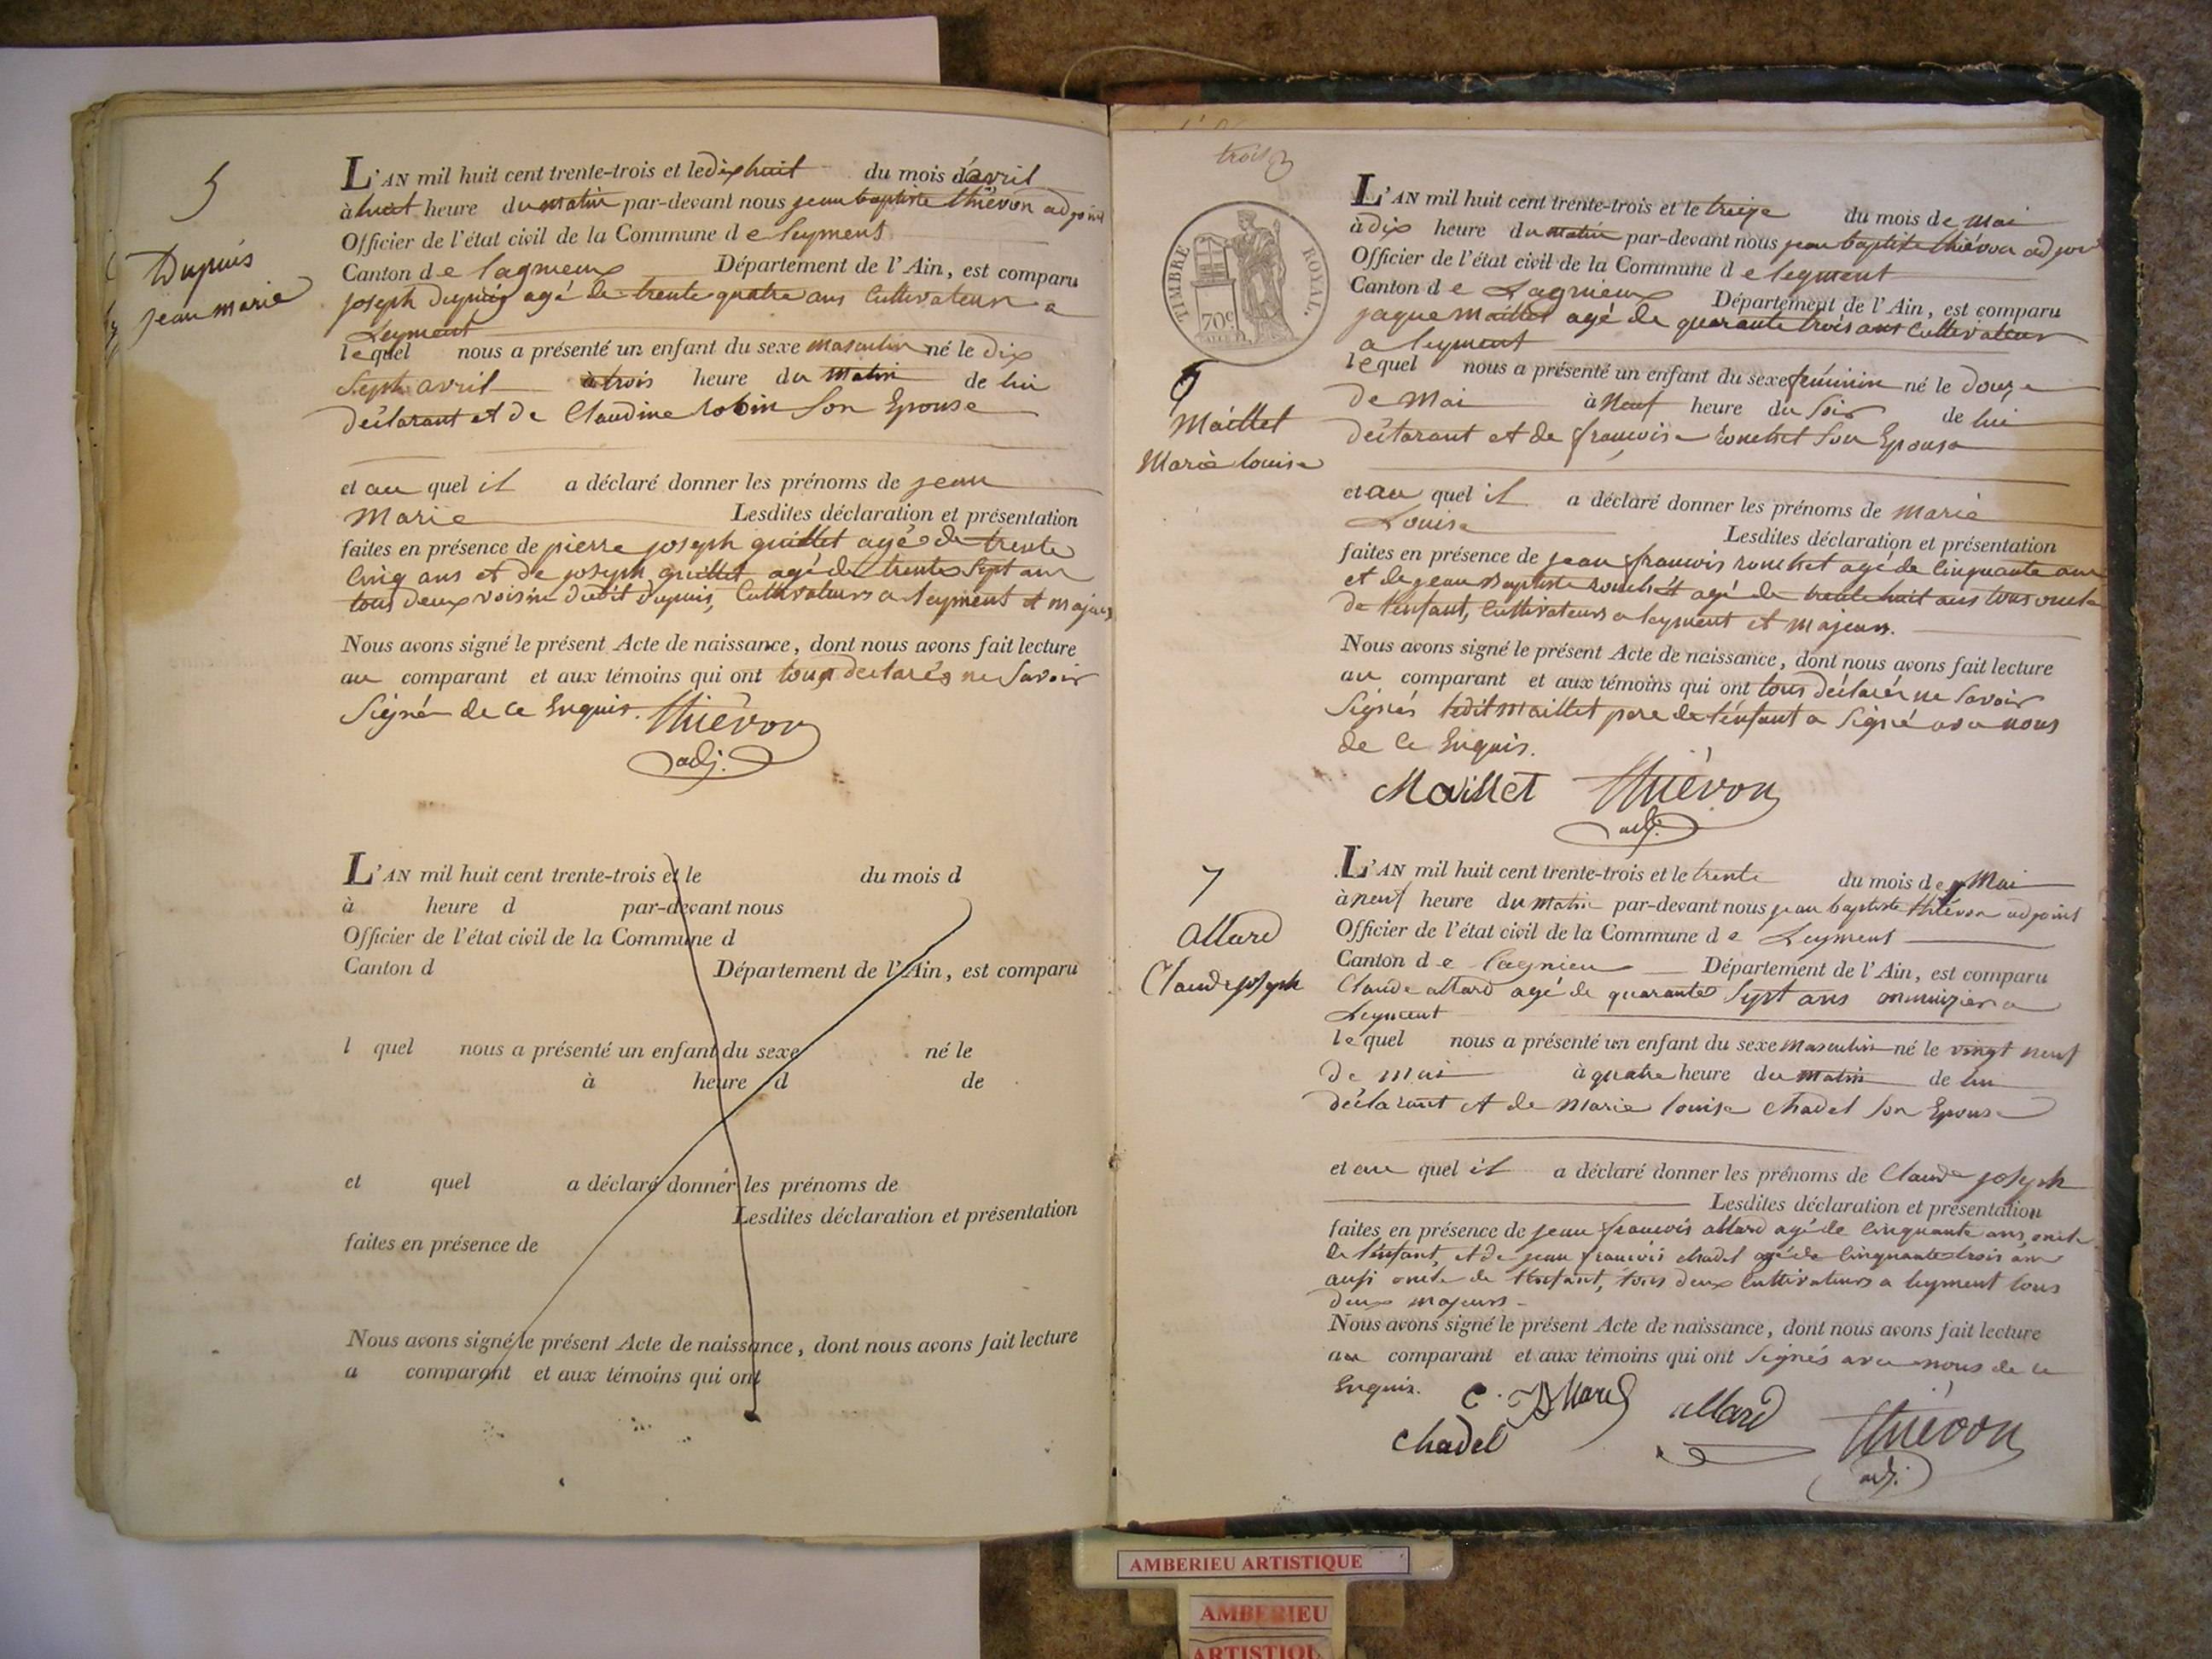 5
Dupuis
jean marie
L'AN mil huit cent trente-trois et le dix huit du mois d'avril
à huit heure du matin par-devant nous jean baptiste thiévon adjoint
Officier de l'état civil de la Commune de leyment
Canton de lagnieux Département de l'Ain, est comparu
joseph dupuis agé de trente quatre ans Cultivateur a
Leyment
lequel nous a présenté un enfant du sexe masculin né le dix
Sept avril à trois heure du matin de lui
déclarant et de Claudine robin Son Epouse
et au quel il a déclaré donner les prénoms de jean
Marie Lesdites déclaration et présentation
faites en présence de pierre joseph guillet agé de trente
Cinq ans et de joseph guillet agé de trente Sept ans
tous deux voisin dudit dupuis, Cultivateurs a leyment et majeurs
Nous avons signé le présent Acte de naissance, dont nous avons fait lecture
au comparant et aux témoins qui ont tous declarés ne Savoir
Signé de ce Enquis. Thiévon
adj.
L'AN mil huit cent trente-trois et le du mois d
à heure d par-devant nous
Officier de l'état civil de la Commune d
Canton d Département de l'Ain, est comparu
l quel nous a présenté un enfant du sexe né le
à heure d de
et quel a déclaré donner les prénoms de
Lesdites déclaration et présentation
faites en présence de
Nous avons signé le présent Acte de naissance, dont nous avons fait lecture
a comparant et aux témoins qui ont
trois
TIMBRE ROYAL.
70c
6
Maillet
Marie louise
L'AN mil huit cent trente-trois et le treize du mois de Mai
à dix heure du matin par-devant nous jean baptiste thiévon adjoi
Officier de l'état civil de la Commune de leyment
Canton de Lagnieux Département de l'Ain, est comparu
jaque Maillet agé de quarante trois ans Cultivateur
a leyment
lequel nous a présenté un enfant du sexe féminin né le douze
de Mai à Neuf heure du Soir de lui
déclarant et de françoise rouchet Son Epouse
et au quel il a déclaré donner les prénoms de Marie
Louise Lesdites déclaration et présentation
faites en présence de jean françois rouchet agé de Cinquante ans
et de jean Baptiste rouchet agé de trente huit ans tous oncle
de l'enfant, Cultivateurs a leyment et majeurs.
Nous avons signé le présent Acte de naissance, dont nous avons fait lecture
au comparant et aux témoins qui ont tous déclarér ne Savoir
Signés ledit Maillet pere de l'enfant a Signé avec nous
de Ce Enquis.
Maillet Thiévon
adj.
7
allard
Claude joseph
L'AN mil huit cent trente-trois et le trente du mois de Mai
à neuf heure du matin par-devant nous jean baptiste thiévon adjoint
Officier de l'état civil de la Commune de Leyment
Canton de lagnieu Département de l'Ain, est comparu
Claude allard agé de quarante Sept ans a
Leyment
lequel nous a présenté un enfant du sexe masculin né le vingt neuf
de mai à quatre heure du matin de lui
déclarant et de Marie louise chadel Son Epouse
et au quel il a déclaré donner les prénoms de Claude joseph
Lesdites déclaration et présentation
faites en présence de jean françois allard agé de Cinquante ans, oncle
de l'enfant, et de jean françois chadel agé de Cinquante trois ans
aussi oncle de l'enfant, tous deux Cultivateurs a leyment tous
deux majeurs
Nous avons signé le présent Acte de naissance, dont nous avons fait lecture
au comparant et aux témoins qui ont Signés avec nous de ce
Enquis. C. allard Thiévon
chadel
adj.
AMBERIEU ARTISTIQUE
AMBERIEU
ARTISTIQU